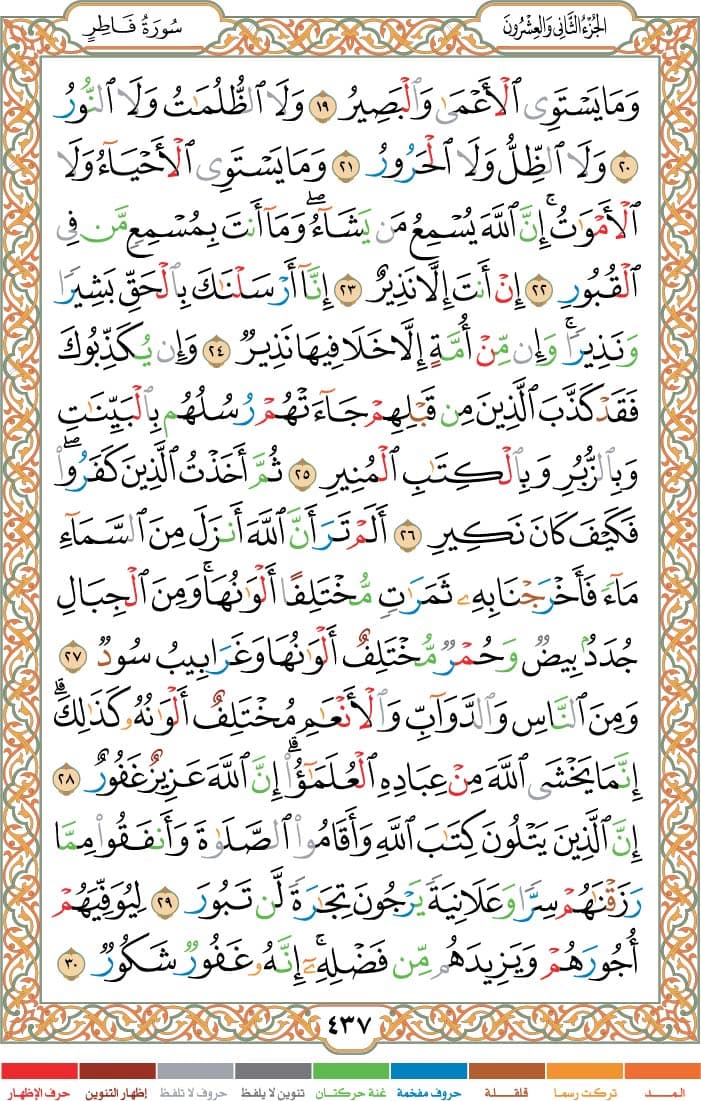 الجزء الثاني والعشرون
سورة فاطر
وَمَا يَسْتَوِي الْأَعْمَىٰ وَالْبَصِيرُ ١٩ وَلَا الظُّلُمَاتُ وَلَا النُّورُ
٢٠ وَلَا الظِّلُّ وَلَا الْحَرُورُ ٢١ وَمَا يَسْتَوِي الْأَحْيَاءُ وَلَا
الْأَمْوَاتُ ۚ إِنَّ اللَّهَ يُسْمِعُ مَن يَشَاءُ ۖ وَمَا أَنتَ بِمُسْمِعٍ مَّن فِي
الْقُبُورِ ٢٢ إِنْ أَنتَ إِلَّا نَذِيرٌ ٢٣ إِنَّا أَرْسَلْنَاكَ بِالْحَقِّ بَشِيرًا
وَنَذِيرًا ۚ وَإِن مِّنْ أُمَّةٍ إِلَّا خَلَا فِيهَا نَذِيرٌ ٢٤ وَإِن يُكَذِّبُوكَ
فَقَدْ كَذَّبَ الَّذِينَ مِن قَبْلِهِمْ جَاءَتْهُمْ رُسُلُهُم بِالْبَيِّنَاتِ
وَبِالزُّبُرِ وَبِالْكِتَابِ الْمُنِيرِ ٢٥ ثُمَّ أَخَذْتُ الَّذِينَ كَفَرُوا ۖ
فَكَيْفَ كَانَ نَكِيرِ ٢٦ أَلَمْ تَرَ أَنَّ اللَّهَ أَنزَلَ مِنَ السَّمَاءِ
مَاءً فَأَخْرَجْنَا بِهِ ثَمَرَاتٍ مُّخْتَلِفًا أَلْوَانُهَا ۚ وَمِنَ الْجِبَالِ
جُدَدٌ بِيضٌ وَحُمْرٌ مُّخْتَلِفٌ أَلْوَانُهَا وَغَرَابِيبُ سُودٌ ٢٧
وَمِنَ النَّاسِ وَالدَّوَابِّ وَالْأَنْعَامِ مُخْتَلِفٌ أَلْوَانُهُ كَذَٰلِكَ ۗ
إِنَّمَا يَخْشَى اللَّهَ مِنْ عِبَادِهِ الْعُلَمَاءُ ۗ إِنَّ اللَّهَ عَزِيزٌ غَفُورٌ ٢٨
إِنَّ الَّذِينَ يَتْلُونَ كِتَابَ اللَّهِ وَأَقَامُوا الصَّلَاةَ وَأَنفَقُوا مِمَّا
رَزَقْنَاهُمْ سِرًّا وَعَلَانِيَةً يَرْجُونَ تِجَارَةً لَّن تَبُورَ ٢٩ لِيُوَفِّيَهُمْ
أُجُورَهُمْ وَيَزِيدَهُم مِّن فَضْلِهِ ۚ إِنَّهُ غَفُورٌ شَكُورٌ ٣٠
٤٣٧
المــد
تركت رسما
قلقلة
حروف مفخمة
غنة حركتان
تنوين لا يلفظ
حروف لا تلفظ
إظهار التنوين
حرف الإظهار